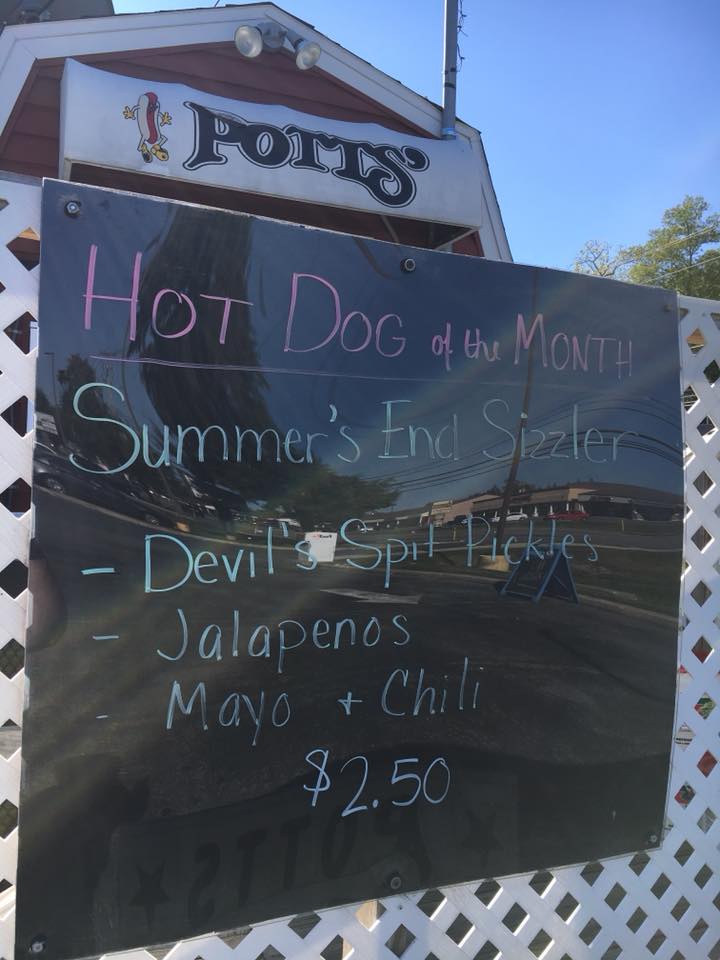 POTTS'
HOT DOG of the MONTH
Summer's End Sizzler
- Devil's Spit Pickles
- Jalapenos
- Mayo + Chili
$2.50
POTTS